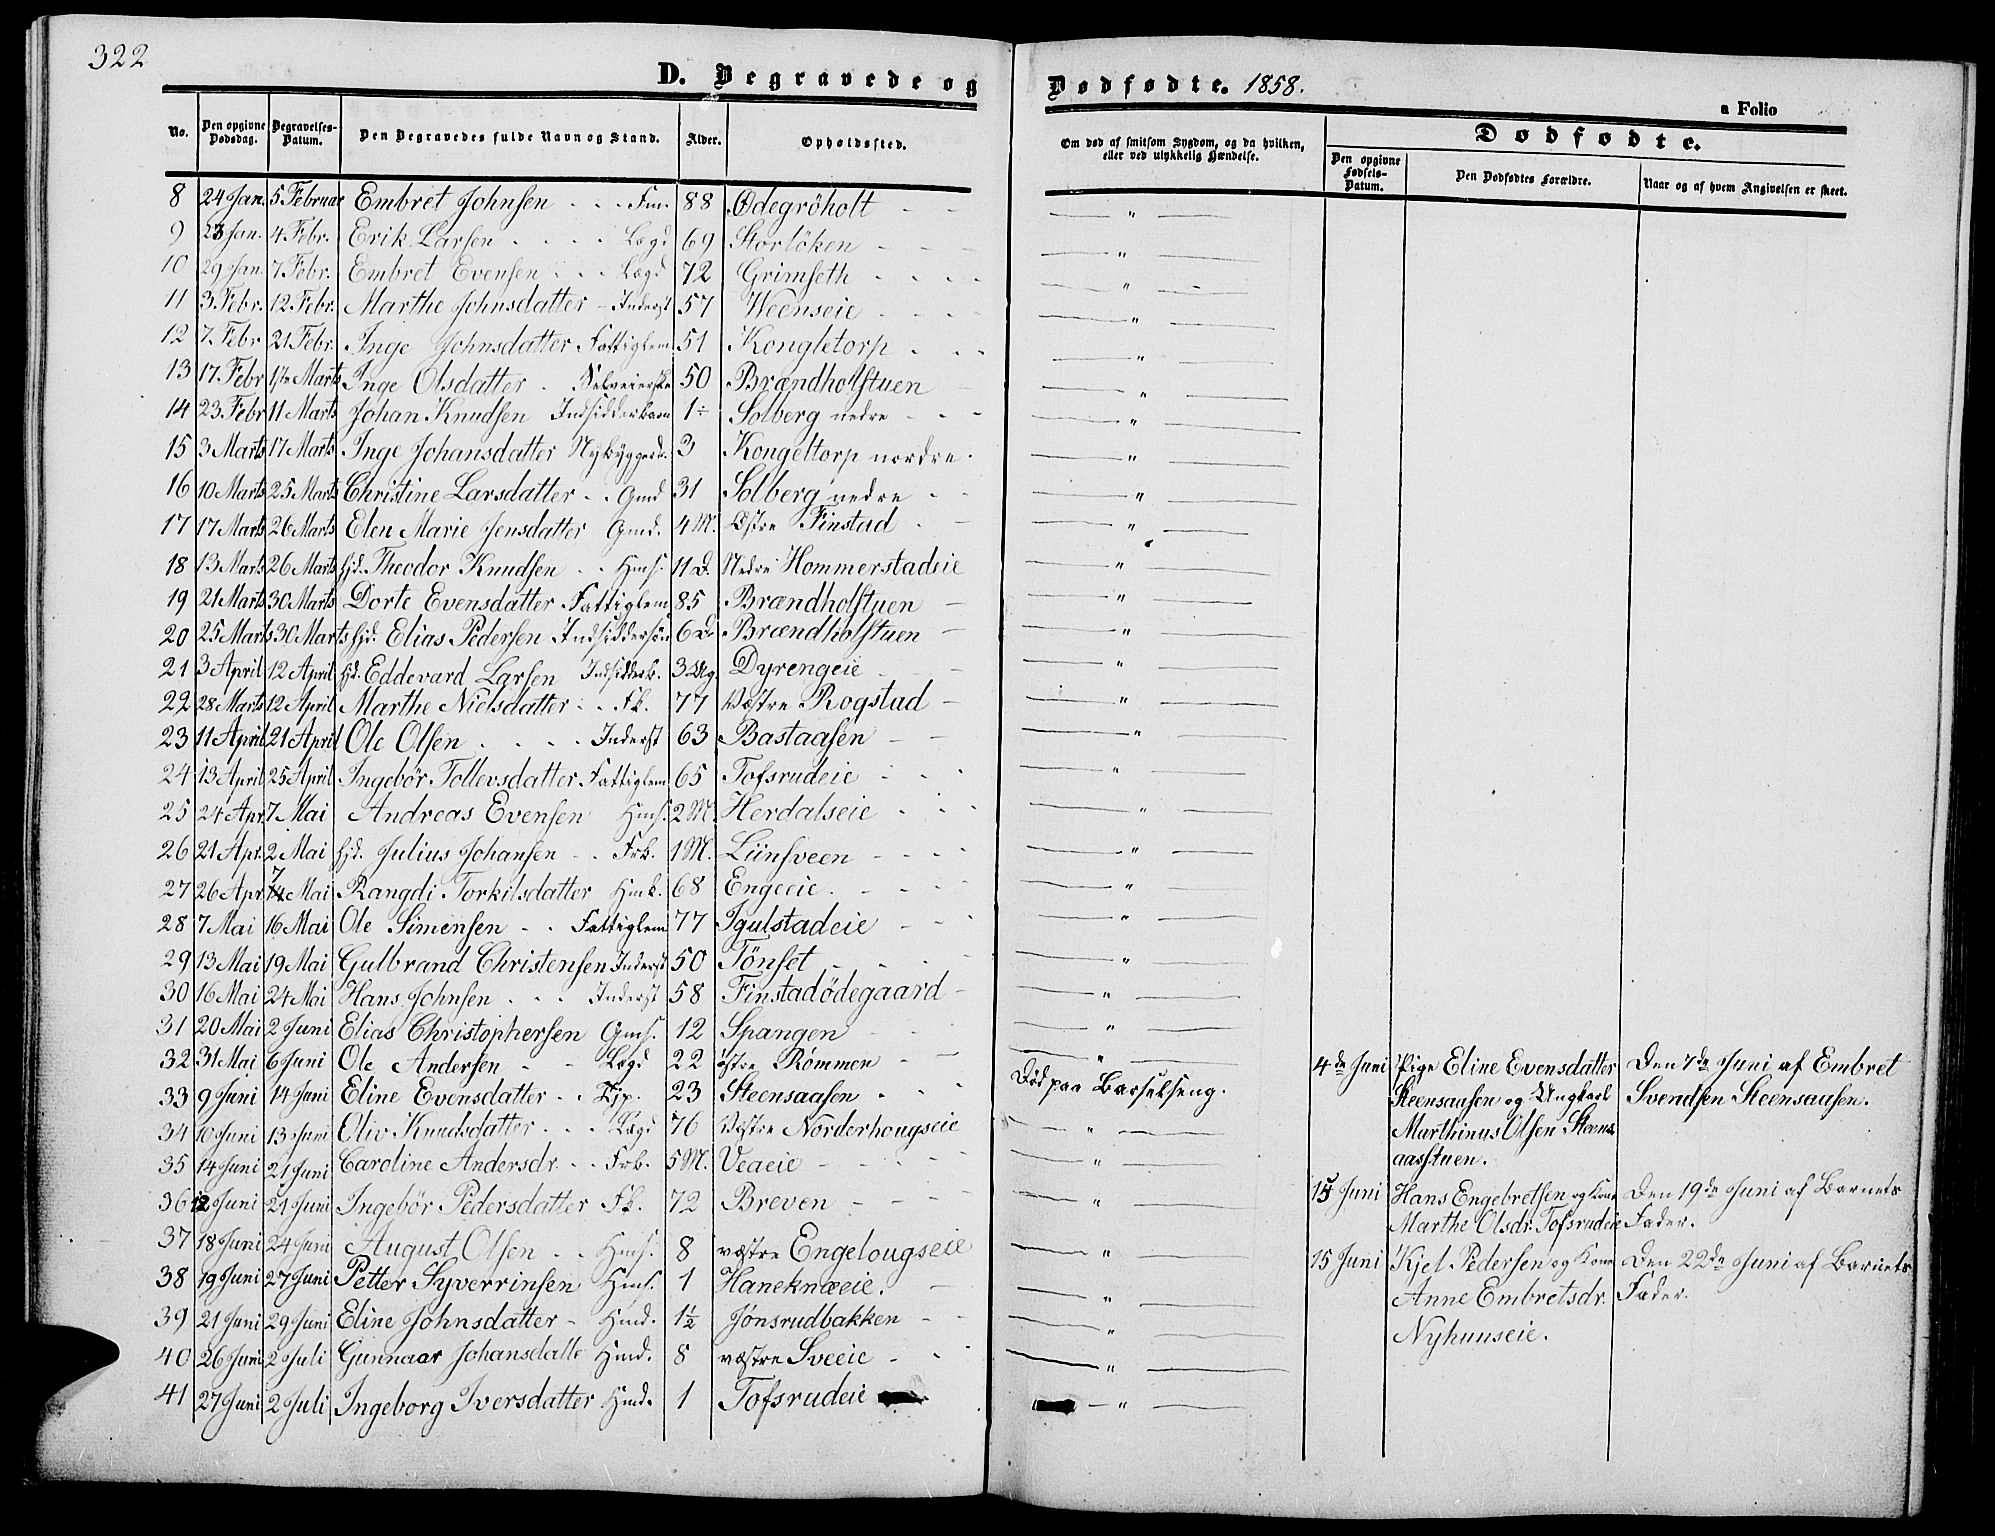 322
D. Begravede og Dødfødte. 1858.
a Folio
No. Den opgivne Dødsdag. Begravelses-Datum. Den Begravedes fulde Navn og Stand. Alder. Opholdssted.
Om død af smitsom Sygdom, og da hvilken, eller ved ulykkelig Hændelse.
Dødfødte.
Den opgivne Fødsels-Datum. Den Dødfødtes Forældre. Naar og af hvem Angivelsen er skeet.
8 24 Jan. 5 Februar Embret Johnsen - - - Fm. 88 Ødegröholt - - "
9 23 Jan. 4 Febr. Erik Larsen . . . . Lægd 69 Storlöken - - - "
10 29 Jan. 7 Febr. Embret Evensen . . . Lægd 72 Grimseth . . . . "
11 3 Febr. 12 Febr. Marthe Johnsdatter - Inderst 57 Weenseie . . . . "
12 7. Febr 21 Febr. Inge Johnsdatter Fattiglem 51 Kongletorp . . . "
13 17. Febr 1ste Marts Inge Olsdatter . Selveierske 50 Brændholstuen "
14 23. Febr 11 Marts Johan Knudsen Indsidderbarn 1 ÷ Solberg nedre - - "
15 3 Marts 17 Marts Inge Johansdatter Nybyggerd. 3 Kongeltorp nordre . "
16 10 Marts 25 Marts Christine Larsdatter - - Gmd 31 Solberg nedre - - "
17 17 Marts 26 Marts Elen Marie Jensdatter Gmd. 4 M. Østre Finstad . - "
18 13 Marts 26 Marts hjd. Theodor Knudsen - - Hms. 11 D. Nedre Hommerstadeie "
19 21 Marts 30 Marts Dorte Evensdatter . Fattiglem 85 Brændholstuen - "
20 25 Marts 30 Marts hjd. Elias Pedersen Indsiddersøn 6 D. Brændholstuen - "
21 3 April 12 April hjd. Eddevard Larsen Indsidderb. 3 Ug. Dyrengeie - - "
22 28 Marts 12 April Marthe Nielsdatter - - Fk. 77 Vestre Rogstad - "
23 11 April 21 April Ole Olsen . . . . Inderst 63 Bastaasen - - "
24 13 April 25 April Ingebör Tollevsdatter Fattiglem 65 Tofsrudeie - - - "
25 24 Apr. 7 Mai Andreas Evensen Hms. 2 M. Herdalseie - - - "
26 21 Apr. 2 Mai hjd. Julius Johansen - - Frb. 1 M. Liinsveen - - - - "
27 26 Apr. 7 Mai Rangdi Torkilsdatter Hmk. 68 Engeeie. - - - - "
28 7 Mai 16 Mai Ole Simensen - - Fattiglem 77 Igulstadeie - - "
29 13 Mai 19 Mai Gulbrand Christensen Inderst 50 Tönset - - - - "
30 16 Mai 24 Mai Hans Johnsen . . . Inderst 58 Finstadödegaard - "
31 20 Mai 2 Juni Elias Christophersen Gms. 12 Spangen - - "
32 31 Mai 6 Juni Ole Andersen - - Lægd 22 östre Römmen - - "
33 9 Juni 14 Juni Eline Evensdatter - - Pjp. 23 Steensaasen - - - Död paa Barselseng.
34 10 Juni 13 Juni Oliv Knudsdatter - - - Lægd 76 Vestre Norderhougseie "
35 14 Juni 21 Juni Caroline Andersdr. - - Frb. 5 M. Veaeie - - - - "
36 12 Juni 21 Juni Ingebör Pedersdatter Fk. 72 Breven - "
37 18 Juni 24 Juni August Olsen - - Hms. 8 vestre Engelougseie "
38 19 Juni 27 Juni Petter Syverrinsen Hms. 1 Haneknæeie. - "
39 21 Juni 29 Juni Eline Johnsdatter - Hmd. 1½ Jönsrudbakken - - "
40 26 Juni 2 Juli Gunnaar Johansdatte Hmd. 8 vestre Sveeie - - - "
41 27 Juni 2 Juli Ingeborg Iversdatter Hmd. 1 Tofsrudeie "
4de Juni Pige Eline Evensdatter Den 7de Juni af Embret
Steensaasen og Ungkarl Svendsen Steensaasen.
Marthinus Olsen Steens
aasstuen.
15 Juni Hans Engebretsen og Kone Den 19de Juni af Barnets
Marthe Olsdr. Tofsrudeie Fader.
15 Juni Kjel Pedersen og Kone Den 22de Juni af Barnets
Anne Embretsdr. Fader.
Nyhuuseie.